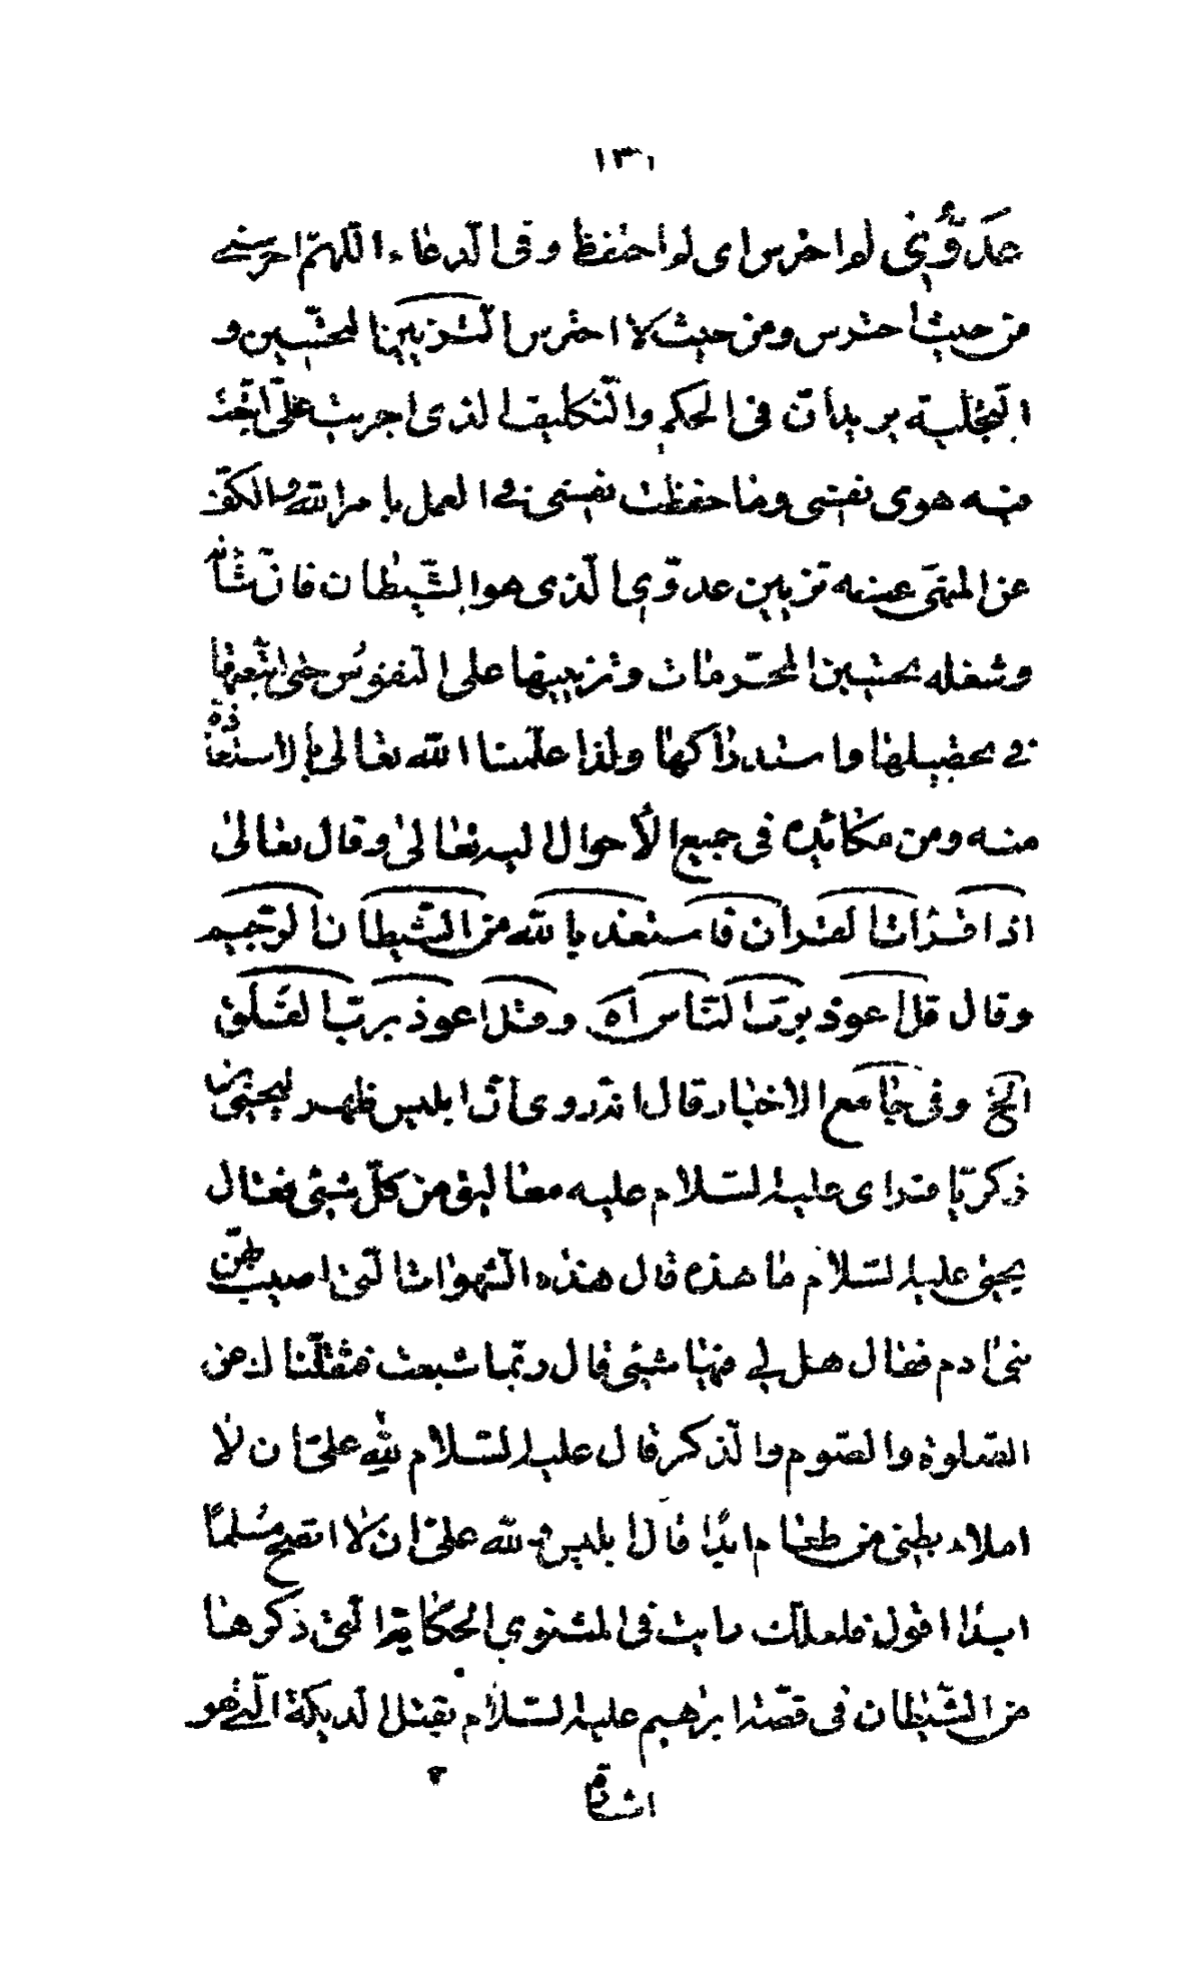 ١٣١
عدوّى لم احترس اى لم احتفظ وفى الدعاء اللهمّ احرسنى
من حيث احترس ومن حيث لا احترس التزيين التحسين و
التجلية يريد أن فى الحكم والتكليف الذى اجريت علىّ اتّبعت
فيه هوى نفسى وما حفظت نفسى فى العمل بامر الله والكفّ
عن المنهىّ عنه تزيين عدوّى الذى هو الشيطان فانّ شأنه
وشغله تحسين المحرّمات وتزيينها على النفوس حتى اتّبعها
فى تحصيلها واستدراكها ولذا علّمنا الله تعالى بالاستعاذة
منه ومن مكائده فى جميع الأحوال اليه تعالى وقال تعالى
اذا قرأت القران فاستعذ بالله من الشيطان الرجيم
وقال قل اعوذ بربّ الناس اه وقل اعوذ بربّ الفلق
الخ وفى جامع الاخبار قال انه روى أنّ ابليس ظهر ليحيى بن
ذكريّا فراى عليه السلام عليه معاليق من كلّ شيئى فقال
يحيى عليه السلام ما هذه قال هذه الشهوات التى اصيب بهنّ
بنى ادم فقال هل لى فيها شيئى قال ربّما شبعت فثقّلناك عن
الصلوة والصوم والذكر قال عليه السلام لله علىّ ان لا
املاء بطنى من طعام ابدًا قال ابليس لله علىّ ان لا انصح مسلمًا
ابدًا اقول فلعلك رايت فى المثنوي الحكاية التى ذكرها
من الشيطان فى قصة ابرهيم عليه السلام بقتل الديكة التى هو
اشارة